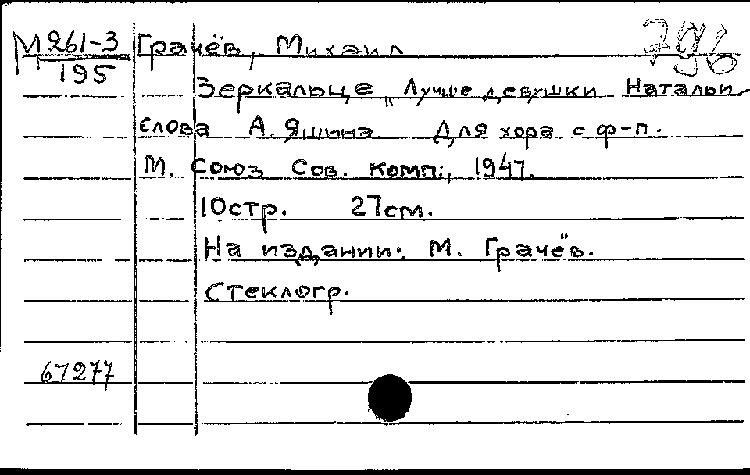 М 261-3 Грачёв, Михаил 796
195
Зеркальце „Лучше девушки Натальи
слова А. Яшина Для хора с ф-п.
М. Союз Сов. Комп., 1947.
10стр. 27см.
На издании: М. Грачёв.
Стеклогр.
67277